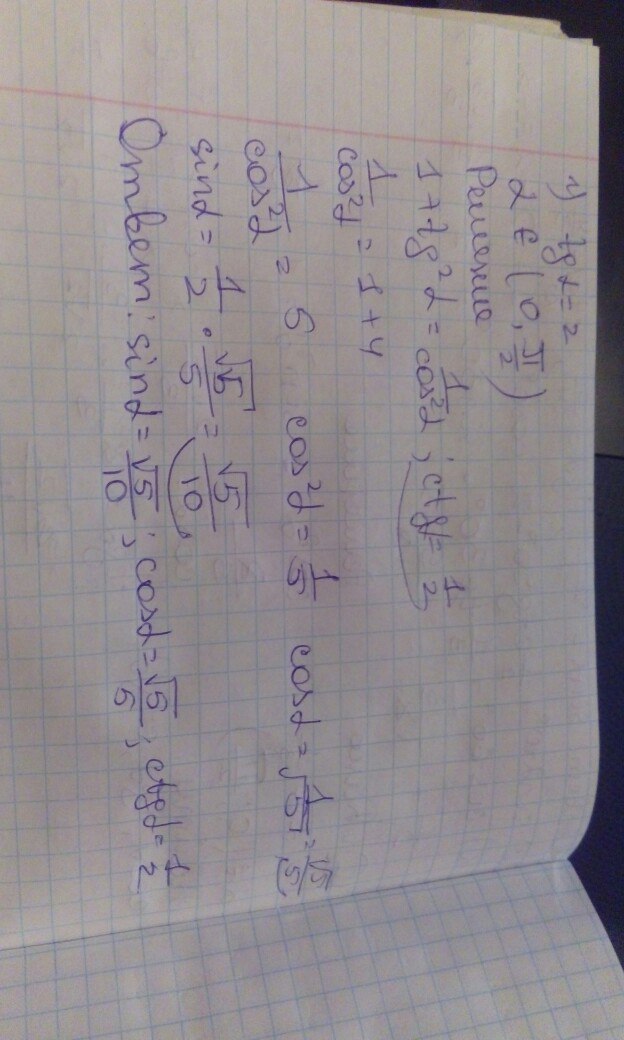 1) tg α = 2
α ∈ (0, π/2)
Решение
1 + tg²α = 1/cos²α ; ctgα = 1/2
1/cos²α = 1 + 4
1/cos²α = 5 cos²α = 1/5 cosα = √(1/5) = √5/5
sinα = 1/2 · √5/5 = √5/10
Ответ: sinα = √5/10 ; cosα = √5/5 ; ctgα = 1/2